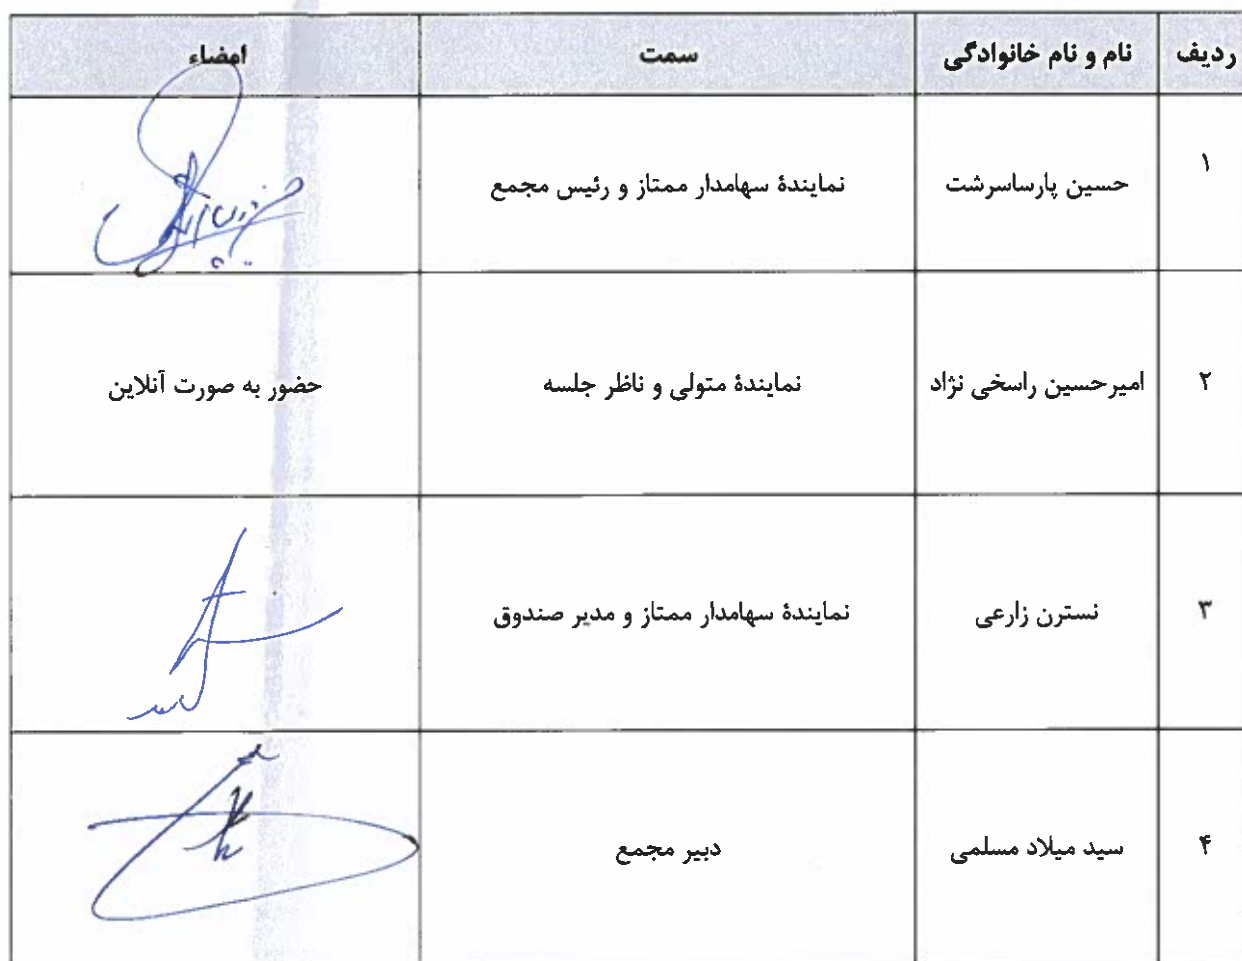 ردیف نام و نام خانوادگی سمت امضاء
۱ حسین پارساسرشت نمایندهٔ سهامدار ممتاز و رئیس مجمع
۲ امیرحسین راسخی نژاد نمایندهٔ متولی و ناظر جلسه حضور به صورت آنلاین
۳ نسترن زارعی نمایندهٔ سهامدار ممتاز و مدیر صندوق
۴ سید میلاد مسلمی دبیر مجمع